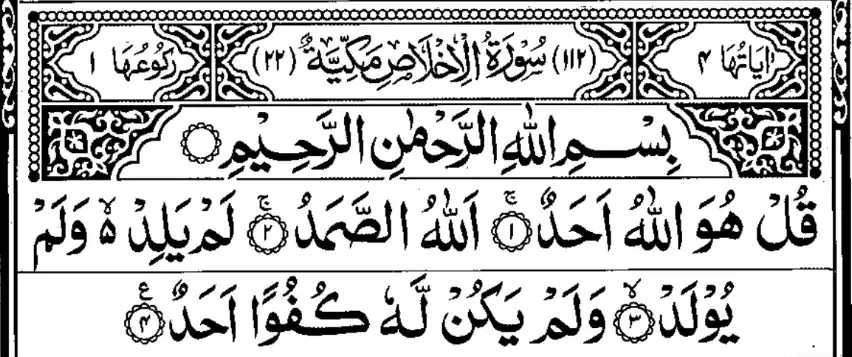 اٰيَاتُهَا ۴ (۱۱۲) سُوْرَةُ الْاِخْلَاصِ مَكِّيَّةٌ (۲۲) رُكُوْعُهَا ۱
بِسْمِ اللّٰهِ الرَّحْمٰنِ الرَّحِيْمِ
قُلْ هُوَ اللّٰهُ اَحَدٌ ۚ﴿۱﴾ اَللّٰهُ الصَّمَدُ ۚ﴿۲﴾ لَمْ يَلِدْ ۵ۙ وَلَمْ
يُوْلَدْ ۙ﴿۳﴾ وَلَمْ يَكُنْ لَّهٗ كُفُوًا اَحَدٌ ﴿۴﴾ ع